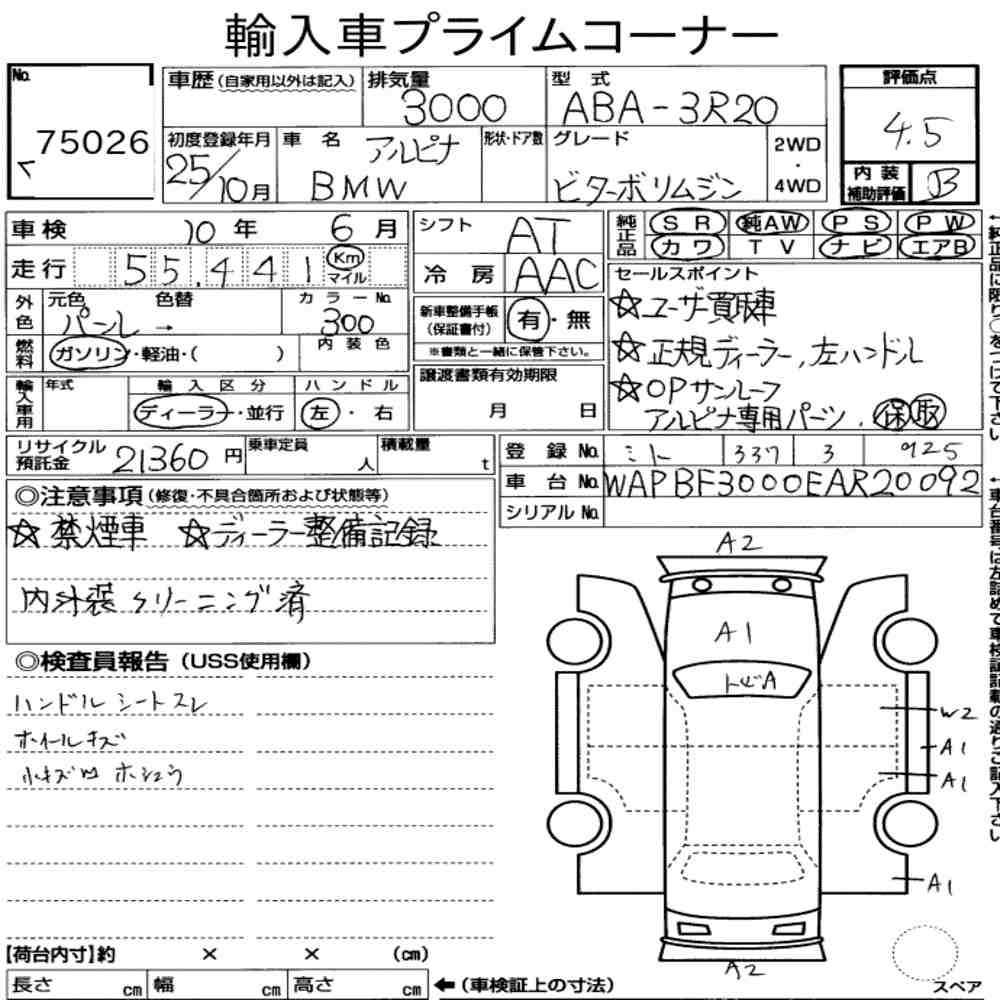 輸入車プライムコーナー
No.
75026
車歴 (自家用以外は記入)
排気量
3000
型式
ABA-3R20
評価点
4.5
初度登録年月
25/10月
車名
アルピナ
BMW
形状・ドア数
グレード
ビターボリムジン
2WD
・
4WD
内装
補助評価
B
車検
10年 6月
走行
55,441 Km
マイル
シフト
AT
冷房
AAC
純正品
SR 純AW PS PW
カワ TV ナビ エアB
外色
元色 パール →
色替
カラーNo.
300
燃料
ガソリン・軽油・( )
内装色
新車整備手帳
(保証書付)
有・無
※書類と一緒に保管下さい。
セールスポイント
☆ユーザ買取車
☆正規ディーラー,左ハンドル
☆OPサンルーフ
アルピナ専用パーツ. 保 取
輸入車用
年式
輸入区分
ディーラー・並行
ハンドル
左・右
譲渡書類有効期限
月 日
リサイクル
預託金
21360円
乗車定員
人
積載量
t
登録No.
ミト 337 3 925
車台No.
WAPBF3000EAR20092
シリアルNo.
◎注意事項 (修復・不具合箇所および状態等)
☆禁煙車 ☆ディーラー整備記録
内外装クリーニング済
◎検査員報告 (USS使用欄)
ハンドルシートスレ
ホイールキズ
小キズ凹 ホシュウ
A2
A1
トビA
W2
A1
A1
A1
A2
スペア
【荷台内寸】約 × × (cm)
長さ cm 幅 cm 高さ cm
←(車検証上の寸法)
←純正品に限り○をつけて下さい
←車台番号は左詰めで車検証記載の通りご記入下さい